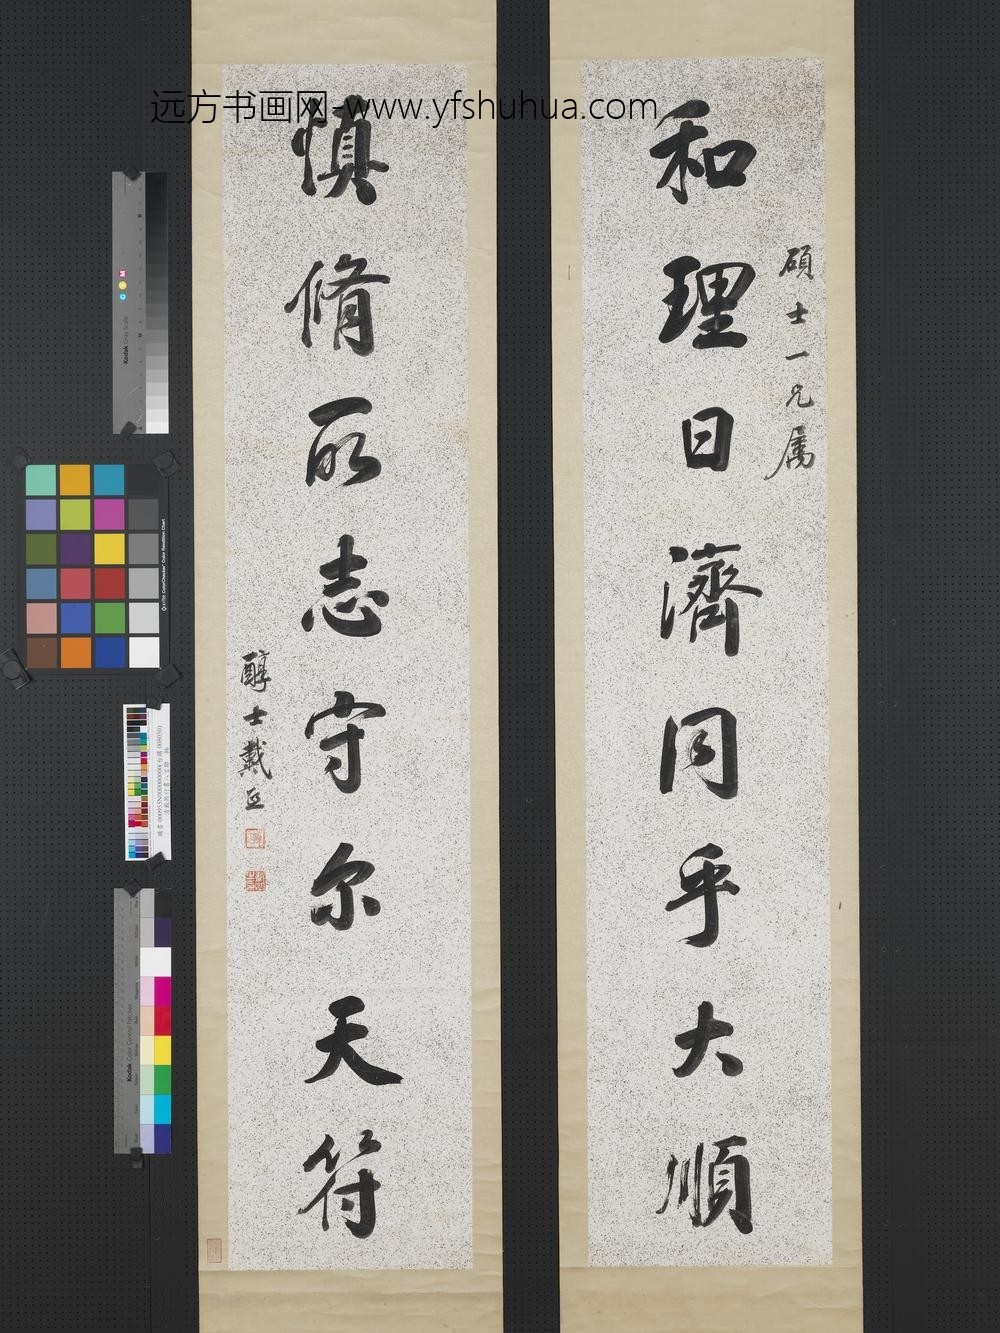 远方书画网-www.yfshuhua.com
碩士一兄属
和理日濟同乎大順
慎脩所志守尔天符
醇士戴熙